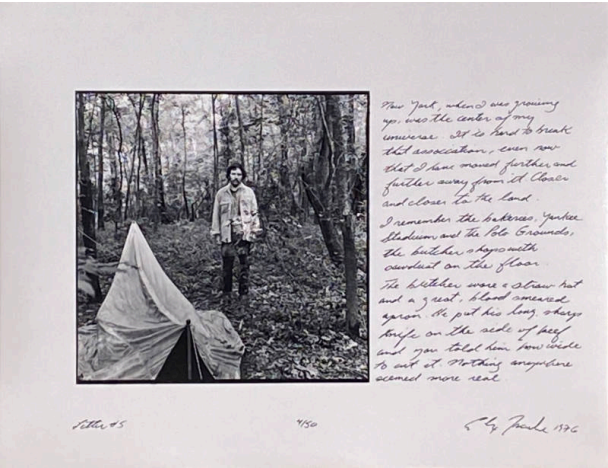 New York, when I was growing
up, was the center of my
universe. It is hard to break
that association, even now
that I have moved further and
further away from it. Closer
and closer to the land.
I remember the bakeries, Yankee
Stadium and the Polo Grounds,
the butcher shops with
sawdust on the floor.
The butcher wore a straw hat
and a great, blood smeared
apron. He put his long, sharp
knife on the side of beef
and you told him how wide
to cut it. Nothing anywhere
seemed more real.
Letter #5
4/50
1976